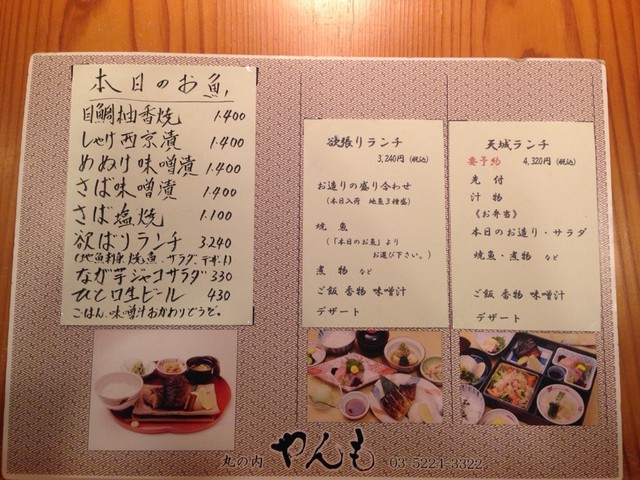 本日のお魚
目鯛柚香焼 1.400
しゃけ西京漬 1.400
めぬけ味噌漬 1.400
さば味噌漬 1.400
さば塩焼 1.100
欲ばりランチ 3.240
(地魚刺身 焼魚、サラダ、デザート)
なが芋ジャコサラダ 330
ひと口生ビール 430
ごはん、味噌汁おかわりどうぞ。
欲張りランチ
3,240円(税込)
お造りの盛り合わせ
(本日入荷 地魚3種盛)
焼 魚
(「本日のお魚」より
お選び下さい。)
煮 物 など
ご飯 香物 味噌汁
デザート
天城ランチ
要予約 4,320円(税込)
先 付
汁 物
《お弁当》
本日のお造り・サラダ
焼魚・煮物 など
ご飯 香物 味噌汁
デザート
丸の内 やんも 03-5224-3322